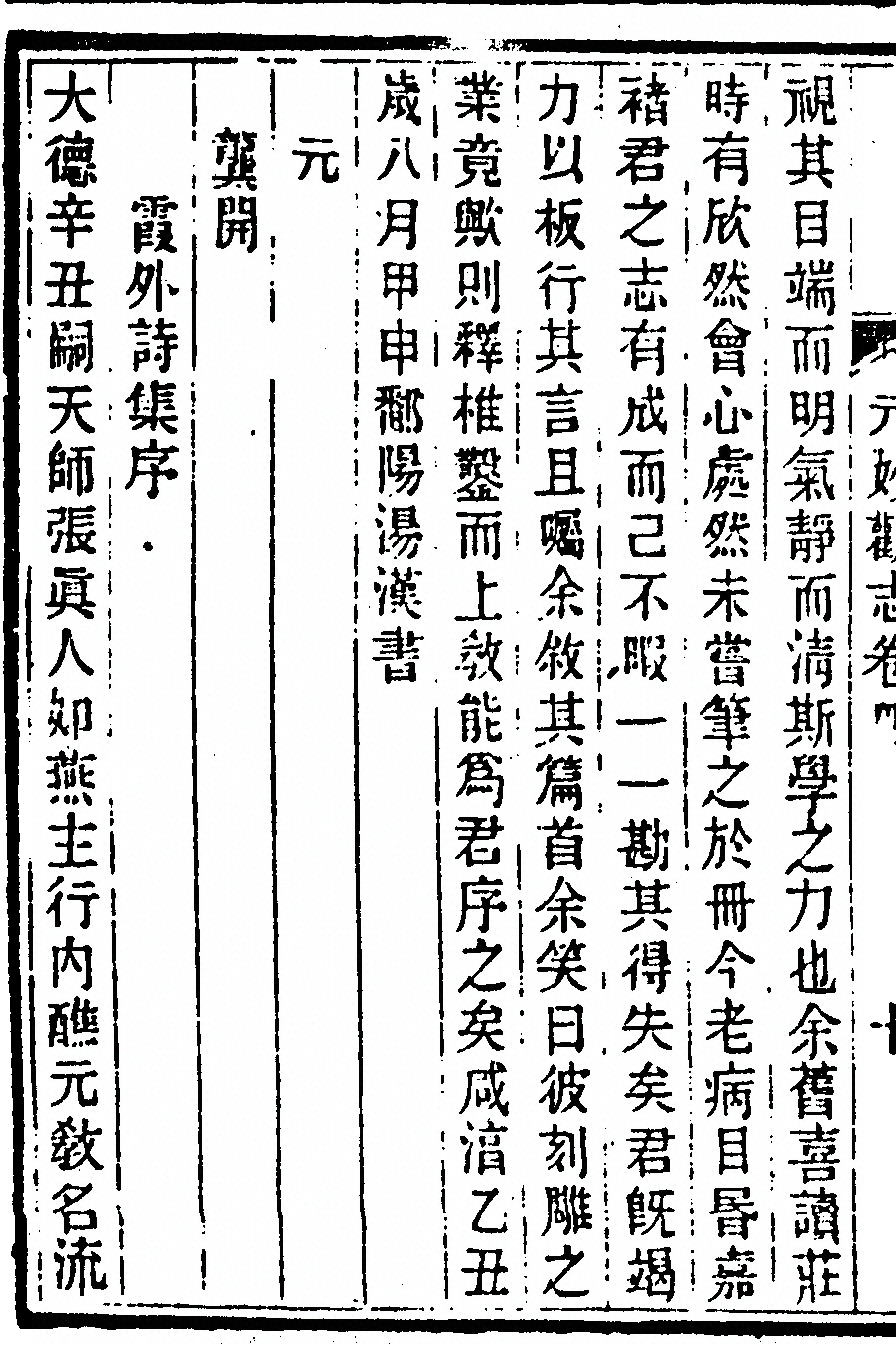 元妙觀志卷四
視其目端而明氣靜而淸斯學之力也余舊喜讀莊
時有欣然會心處然未嘗筆之於冊今老病目昬嘉
褚君之志有成而己不暇一一勘其得失矣君旣竭
力以板行其言且囑余敘其篇首余笑曰彼刻雕之
業竟歟則釋椎鑿而上敎能爲君序之矣咸淳乙丑
歲八月甲申鄱陽湯漢書
元
龔開
霞外詩集序
大德辛丑嗣天師張眞人如燕主行內醮元敎名流